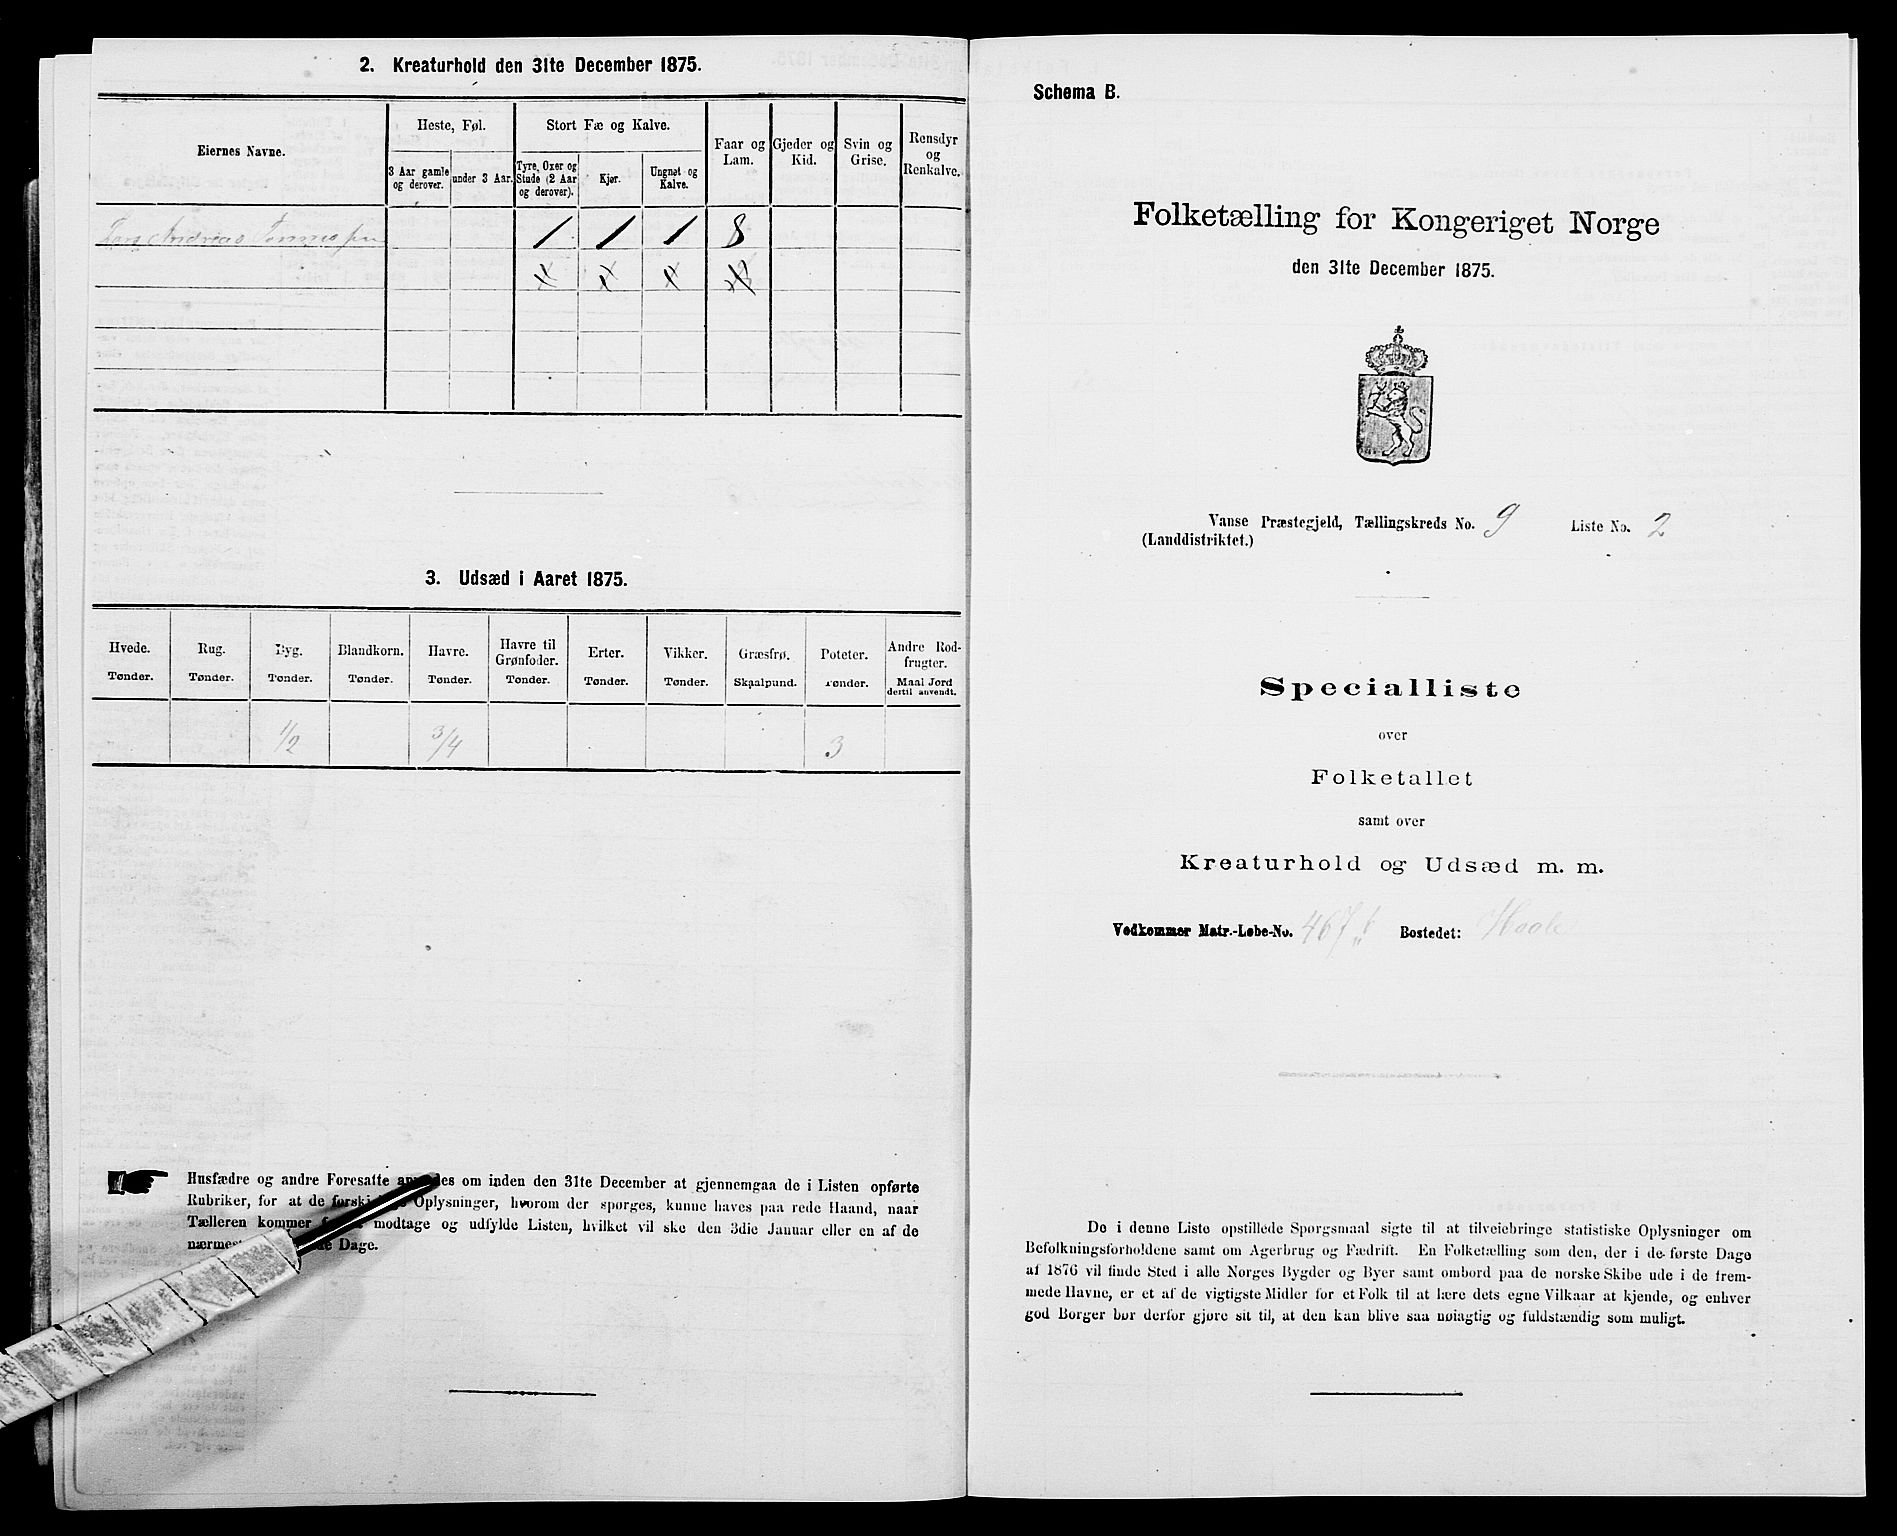 2. Kreaturhold den 31te December 1875.
Eiernes Navne.
Heste, Føl.
Stort Fæ og Kalve.
Faar og Lam.
Gjeder og Kid.
Svin og Grise.
Rensdyr og Renkalve.
3 Aar gamle og derover.
under 3 Aar.
Tyre, Oxer og Stude (2 Aar og derover).
Kjør.
Ungnøt og Kalve.
Andreas 1 1 1 8
3. Udsæd i Aaret 1875.
Hvede. Rug. Byg. Blandkorn. Havre. Havre til Grønfoder. Erter. Vikker. Græsfrø. Poteter. Andre Rodfrugter.
Tønder. Tønder. Tønder. Tønder. Tønder. Tønder. Tønder. Tønder. Skaalpund. Tønder. Maal Jord dertil anvendt.
1/2 3/4 3
Husfædre og andre Foresatte om inden den 31te December at gjennemgaa de i Listen opførte
Rubriker, for at de Oplysninger, hvorom der spørges, kunne haves paa rede Haand, naar
Tælleren kommer modtage og udfylde Listen, hvilket vil ske den 3die Januar eller en af de
Dage.
Schema B.
Folketælling for Kongeriget Norge
den 31te December 1875.
Vanse Præstegjeld, Tællingskreds No. 9 Liste No. 2
(Landdistriktet.)
Specialliste
over
Folketallet
samt over
Kreaturhold og Udsæd m. m.
Vedkommer Matr.-Løbe-No. 467 b Bostedet:
De i denne Liste opstillede Spørgsmaal sigte til at tilveiebringe statistiske Oplysninger om
Befolkningsforholdene samt om Agerbrug og Fædrift. En Folketælling som den, der i de første Dage
af 1876 vil finde Sted i alle Norges Bygder og Byer samt ombord paa de norske Skibe ude i de frem-
mede Havne, er et af de vigtigste Midler for et Folk til at lære dets egne Vilkaar at kjende, og enhver
god Borger bør derfor gjøre sit til, at den kan blive saa nøiagtig og fuldstændig som muligt.